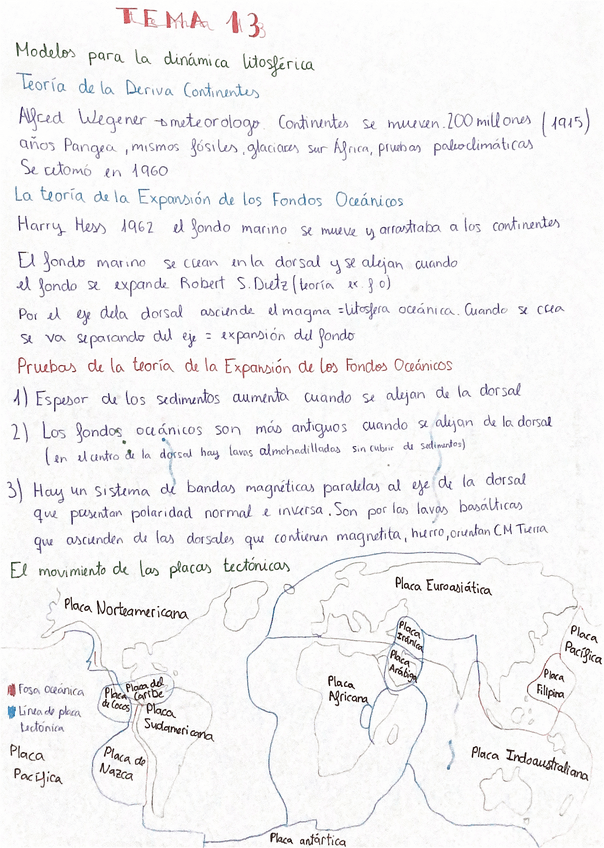 TEMA 13
Modelos para la dinámica litosférica
Teoría de la Deriva Continentes
Alfred Wegener → meteorologo. Continentes se mueven. 200 millones (1915)
años Pangea, mismos fósiles, glaciares sur África, pruebas paleoclimáticas
Se retomó en 1960
La teoría de la Expansión de los Fondos Oceánicos
Harry Hess 1962 el fondo marino se mueve y arrastraba a los continentes
El fondo marino se crean en la dorsal y se alejan cuando
el fondo se expande Robert S. Dietz (teoría ex. f o)
Por el eje dela dorsal asciende el magma = litosfera oceánica. Cuando se crea
se va separando del eje = expansión del fondo
Pruebas de la teoría de la Expansión de los Fondos Oceánicos
1) Espesor de los sedimentos aumenta cuando se alejan de la dorsal
2) Los fondos oceánicos son más antiguos cuando se alejan de la dorsal
(en el centro de la dorsal hay lavas almohadilladas sin cubrir de sedimentos)
3) Hay un sistema de bandas magnéticas paralelas al eje de la dorsal
que presentan polaridad normal e inversa. Son por las lavas basálticas
que ascienden de las dorsales que contienen magnetita, hierro, orientan CM Tierra
El movimiento de las placas tectónicas
Placa Norteamericana
Placa Euroasiática
Placa
Iránica
Placa
Arábiga
Placa
Pacífica
Placa
Filipina
Placa
Africana
Placa del
Caribe
Placa
de Cocos
Placa
Sudamericana
Fosa oceánica
Línea de placa
tectónica
Placa
Pacífica
Placa de
Nazca
Placa Indoaustraliana
Placa antártica